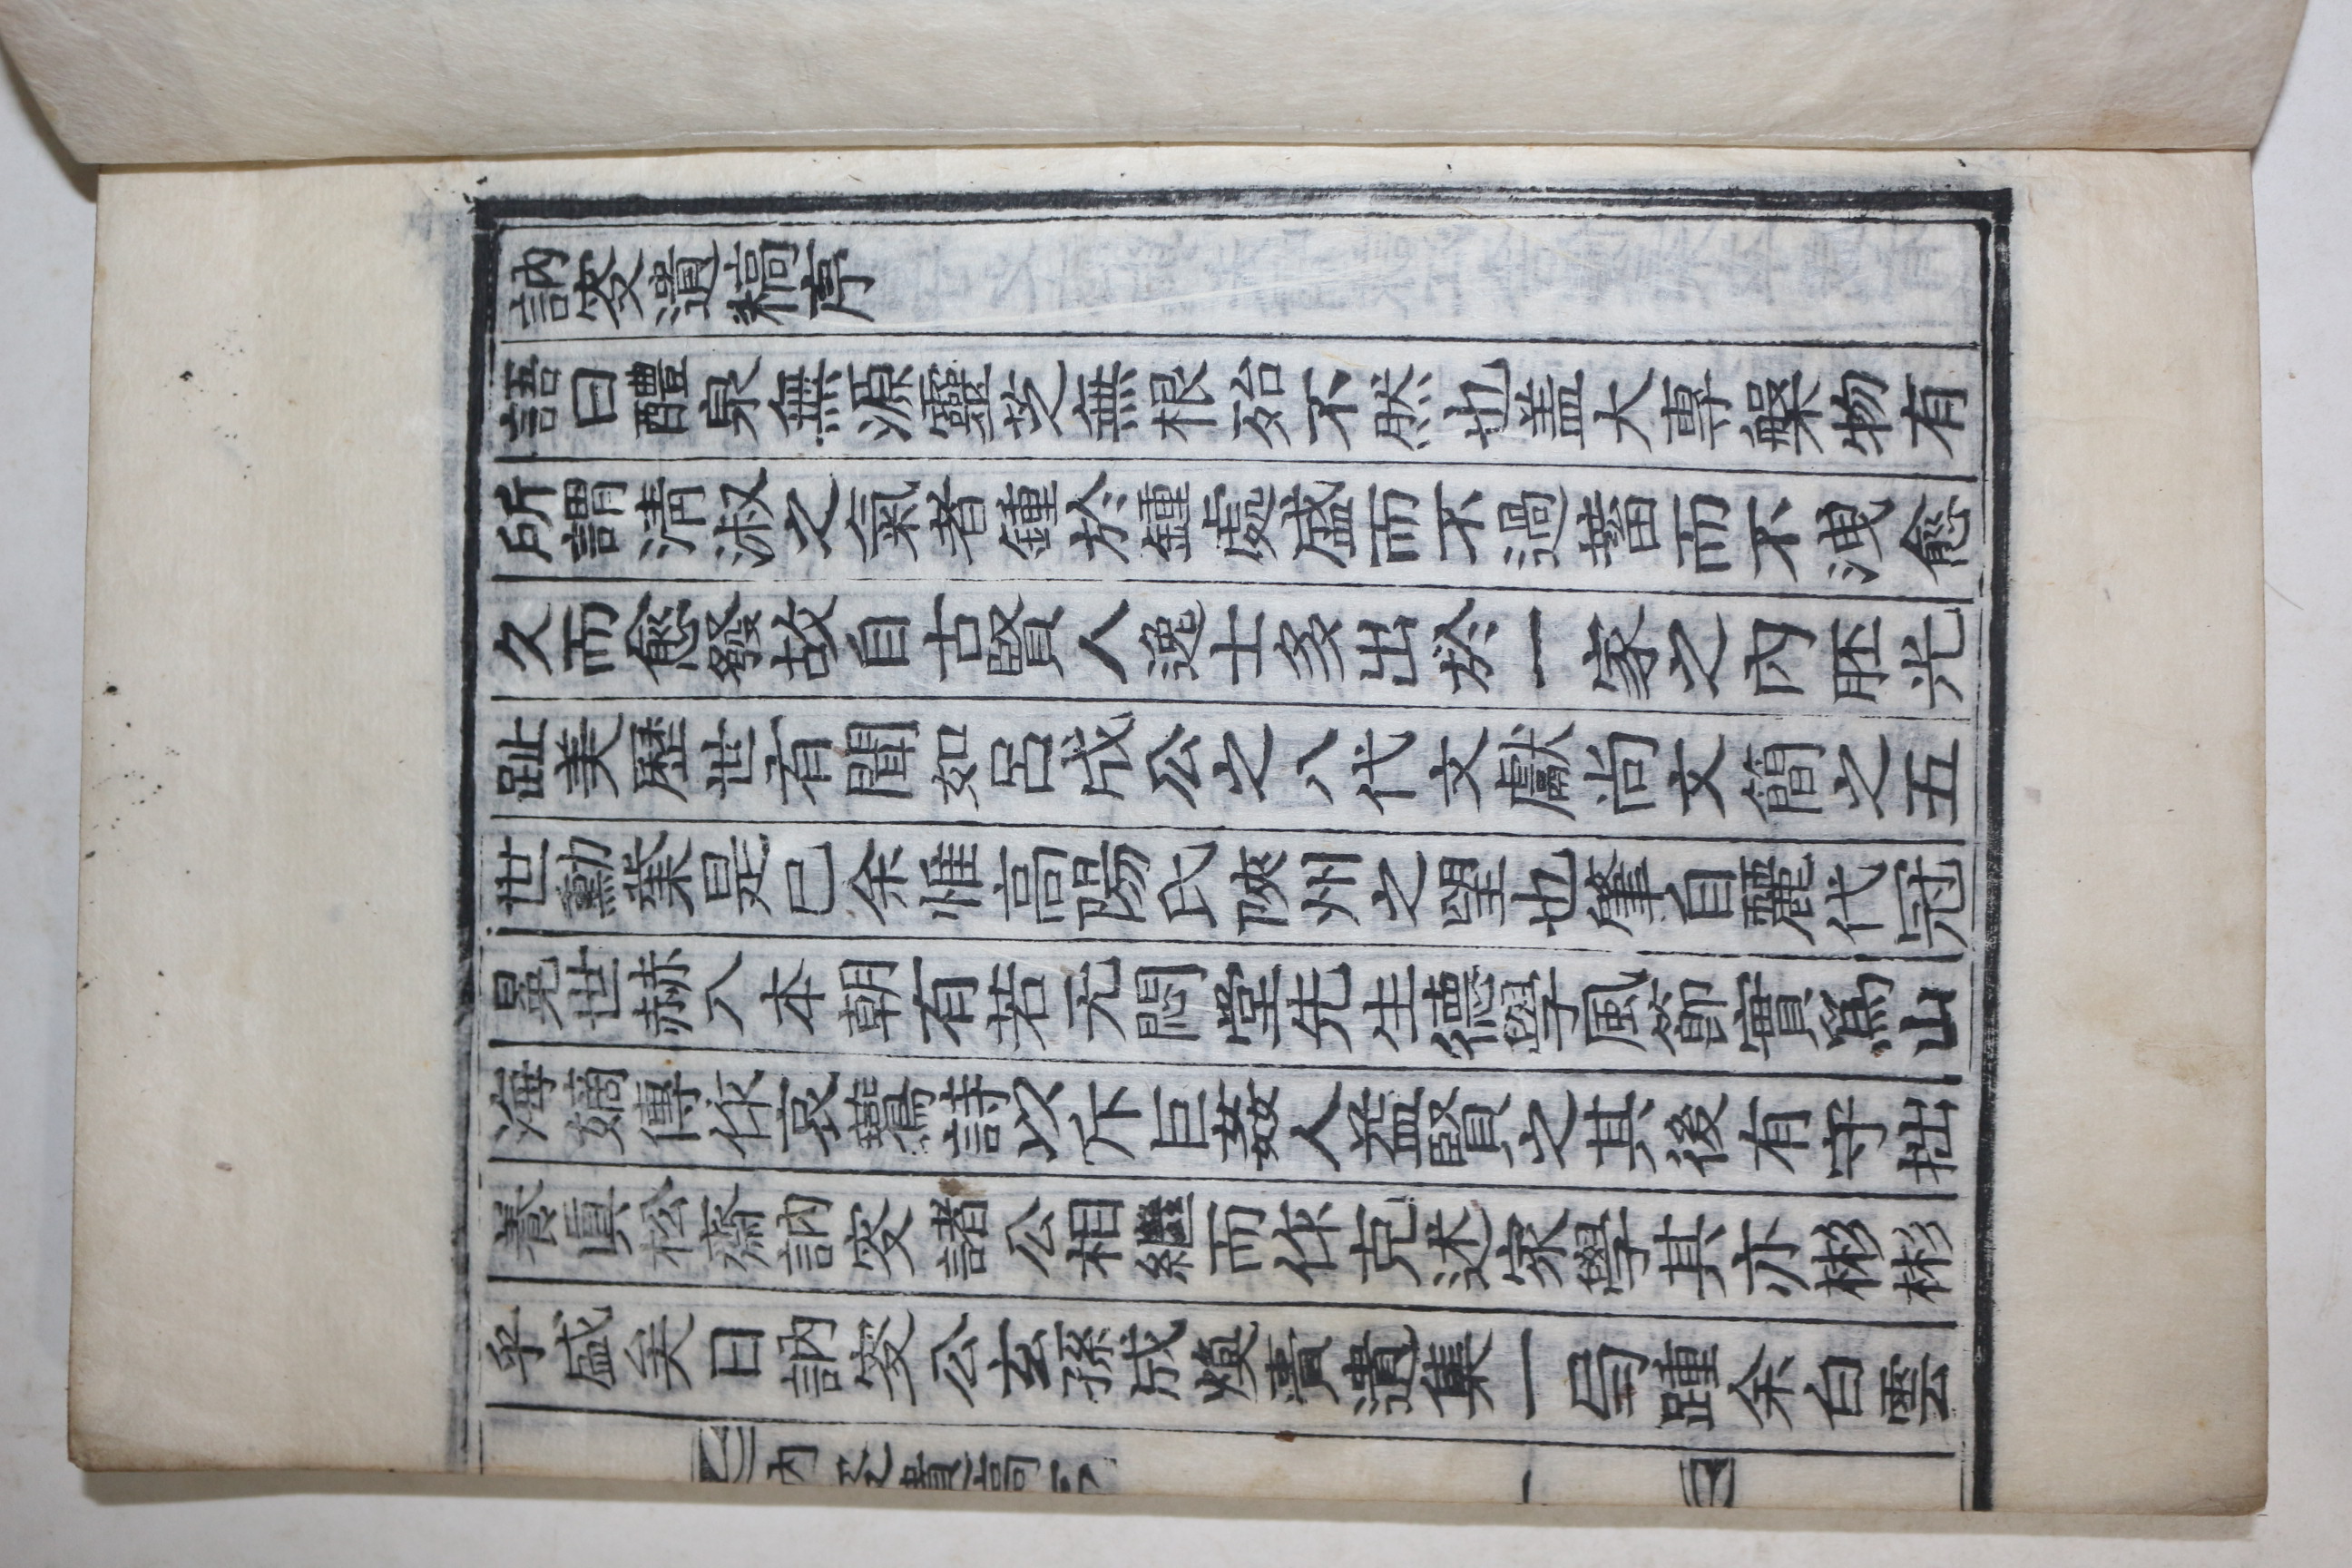 訥窔遺稿序
語曰醴泉無源靈芝無根殆不然也盖大專槃物有
所謂淸淑之氣者鍾於鍾處盛而不過蓄而不洩愈
久而愈發故自古賢人逸士多出於一家之內胚光
趾美歷世有聞如呂成公之八代文獻尚文簡之五
世勳業是已余惟高陽氏陜州之望也肇自麗代冠
冕世赫入本朝有若无悶堂先生德學風節實爲山
海嫡傳作哀鶯詩以斥巨姦人益賢之其後有守拙
養眞松齋訥窔諸公相繼而作克述家學其亦彬彬
乎盛矣日訥窔公玄孫成煥賫遺集一局踵余白雲
訥窔遺稿序
一